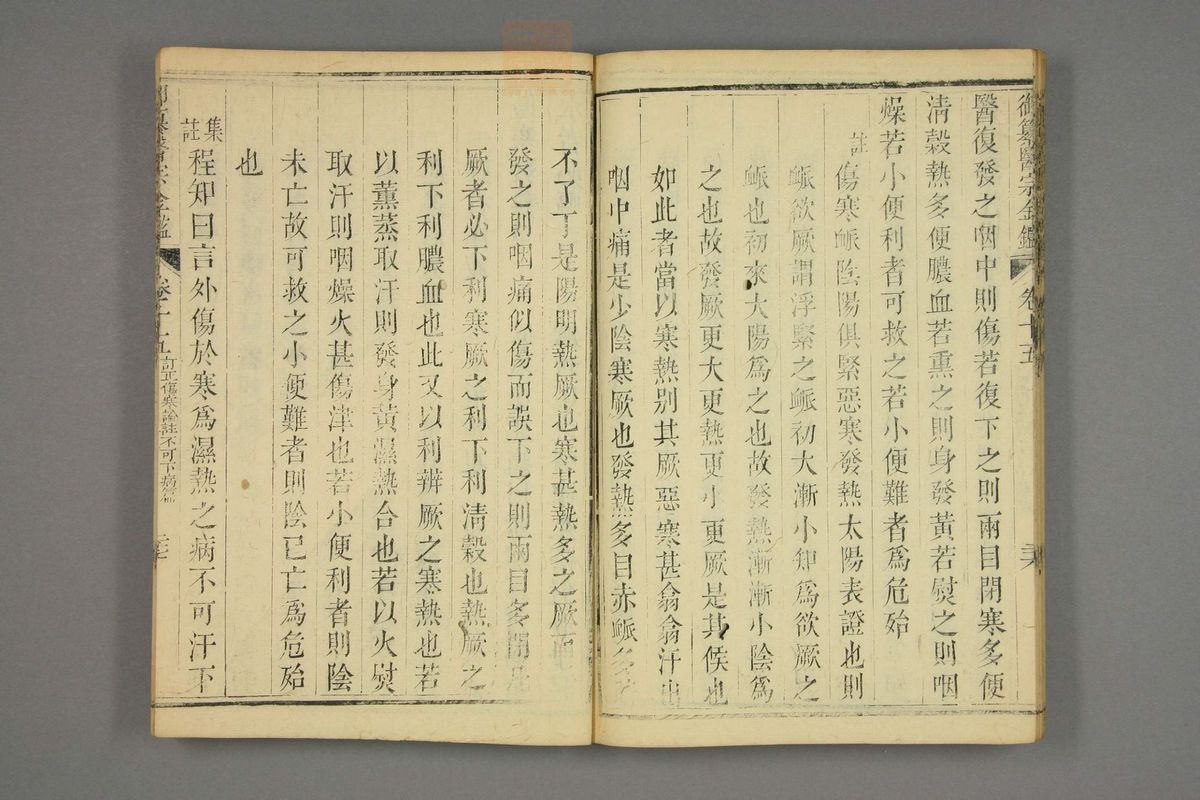 御纂醫宗金鑑 卷十五
醫復發之咽中則傷若復下之則兩目閉寒多便
清穀熱多便膿血若熏之則身發黃若熨之則咽
燥若小便利者可救之若小便難者爲危殆
註 傷寒脈陰陽俱緊惡寒發熱太陽表證也則
脈欲厥謂浮緊之脈初大漸小知爲欲厥之
脈也初來大陽爲之也故發熱漸漸小陰爲
之也故發厥更大更熱更小更厥是其候也
如此者當以寒熱別其厥惡寒甚翕翕汗出
咽中痛是少陰寒厥也發熱多目赤脈多
不了了是陽明熱厥也寒甚熱多之厥
發之則咽痛似傷而誤下之則兩目多閉
厥者必下利寒厥之利下利清穀也熱厥之
利下利膿血也此又以利辨厥之寒熱也若
以薰蒸取汗則發身黃濕熱合也若以火熨
取汗則咽燥火甚傷津也若小便利者則陰
未亡故可救之小便難者則陰已亡爲危殆
也
集註 程知曰言外傷於寒爲濕熱之病不可汗下
金鑑 卷十五 訂正傷寒論註不可下病篇